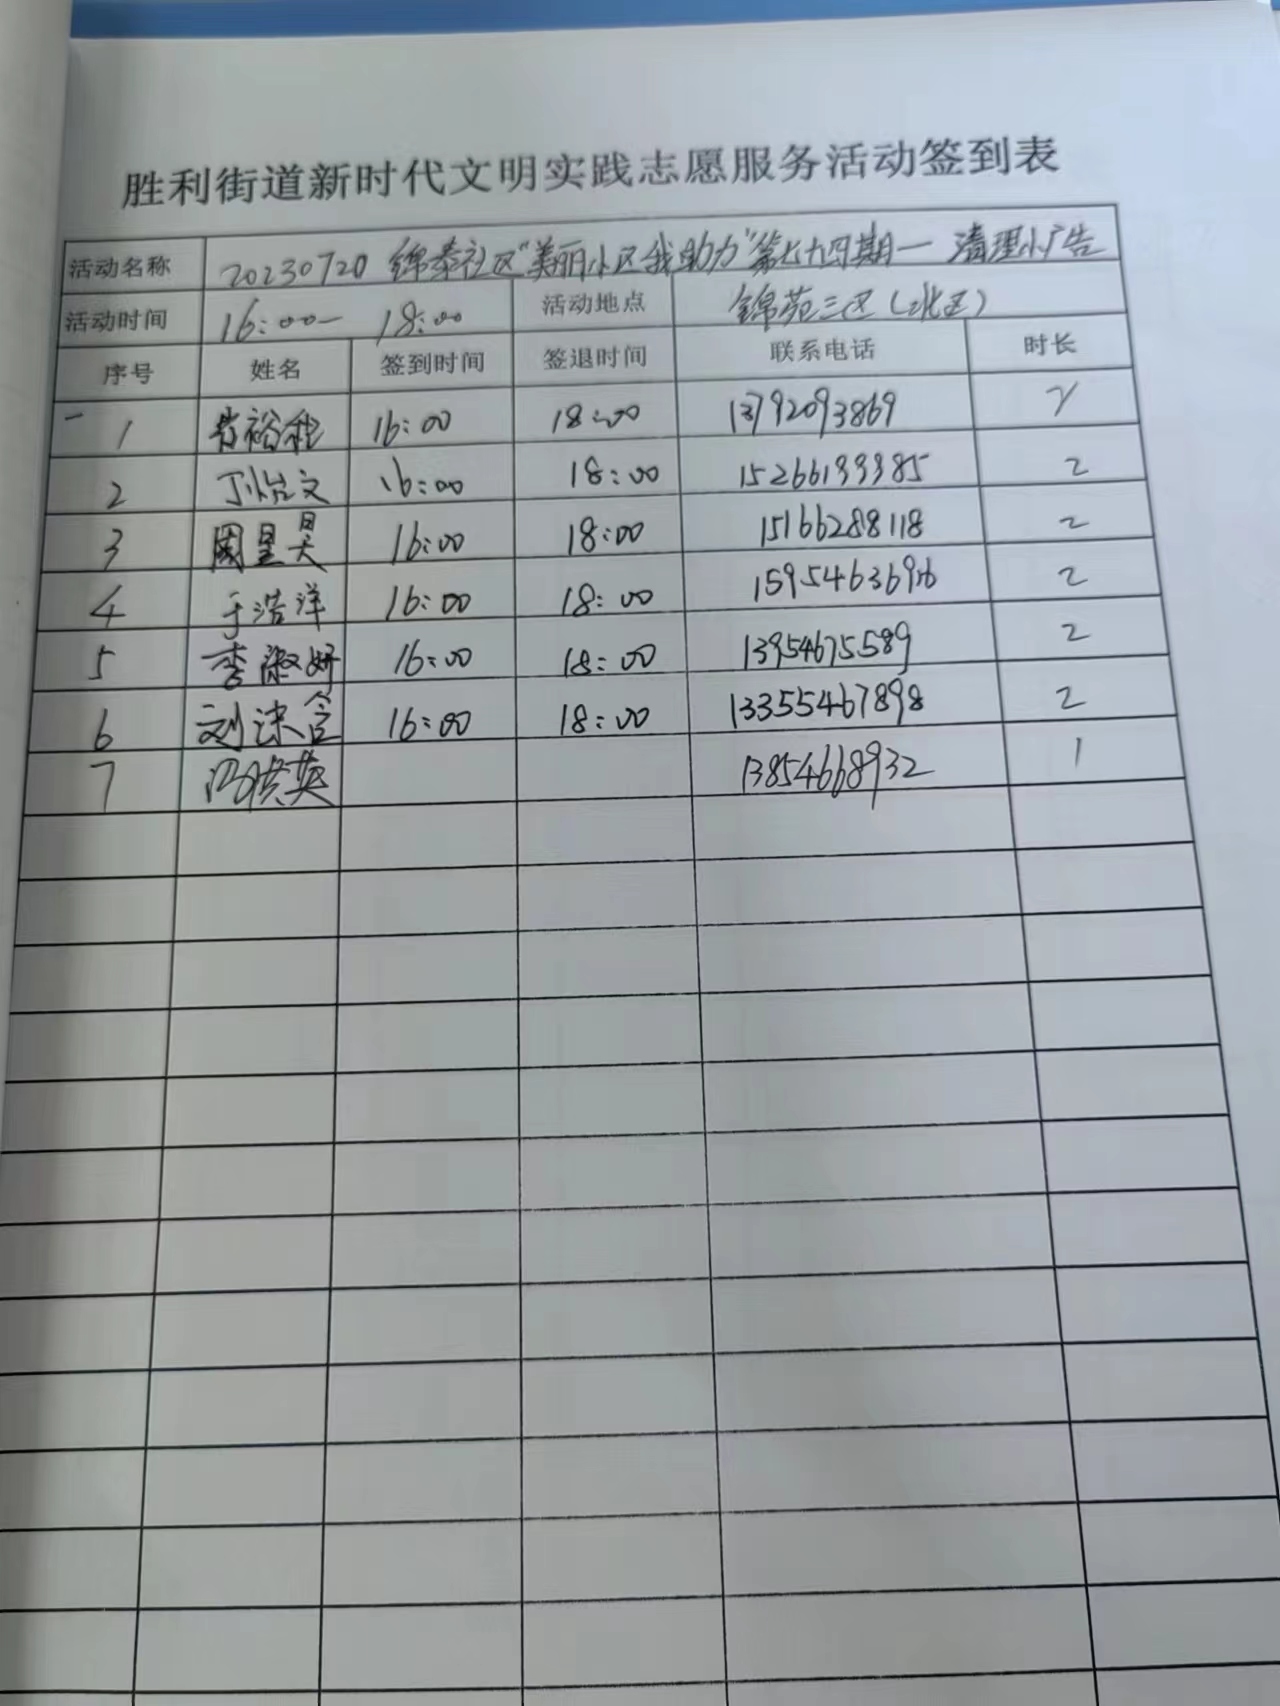 胜利街道新时代文明实践志愿服务活动签到表
活动名称 20230720 锦泰社区"美丽小区我助力"第七十四期一 清理小广告
活动时间 16:00— 18:00 活动地点 锦苑三区(北区)
序号 姓名 签到时间 签退时间 联系电话 时长
1 16:00 18:00 13792093869 2
2 丁怡文 16:00 18:00 15266199985 2
3 周昱昊 16:00 18:00 15166288118 2
4 于浩洋 16:00 18:00 2
5 李淑妍 16:00 18:00 13954675589 2
6 16:00 18:00 13355467898 2
7 冯洪英 13854668932 1